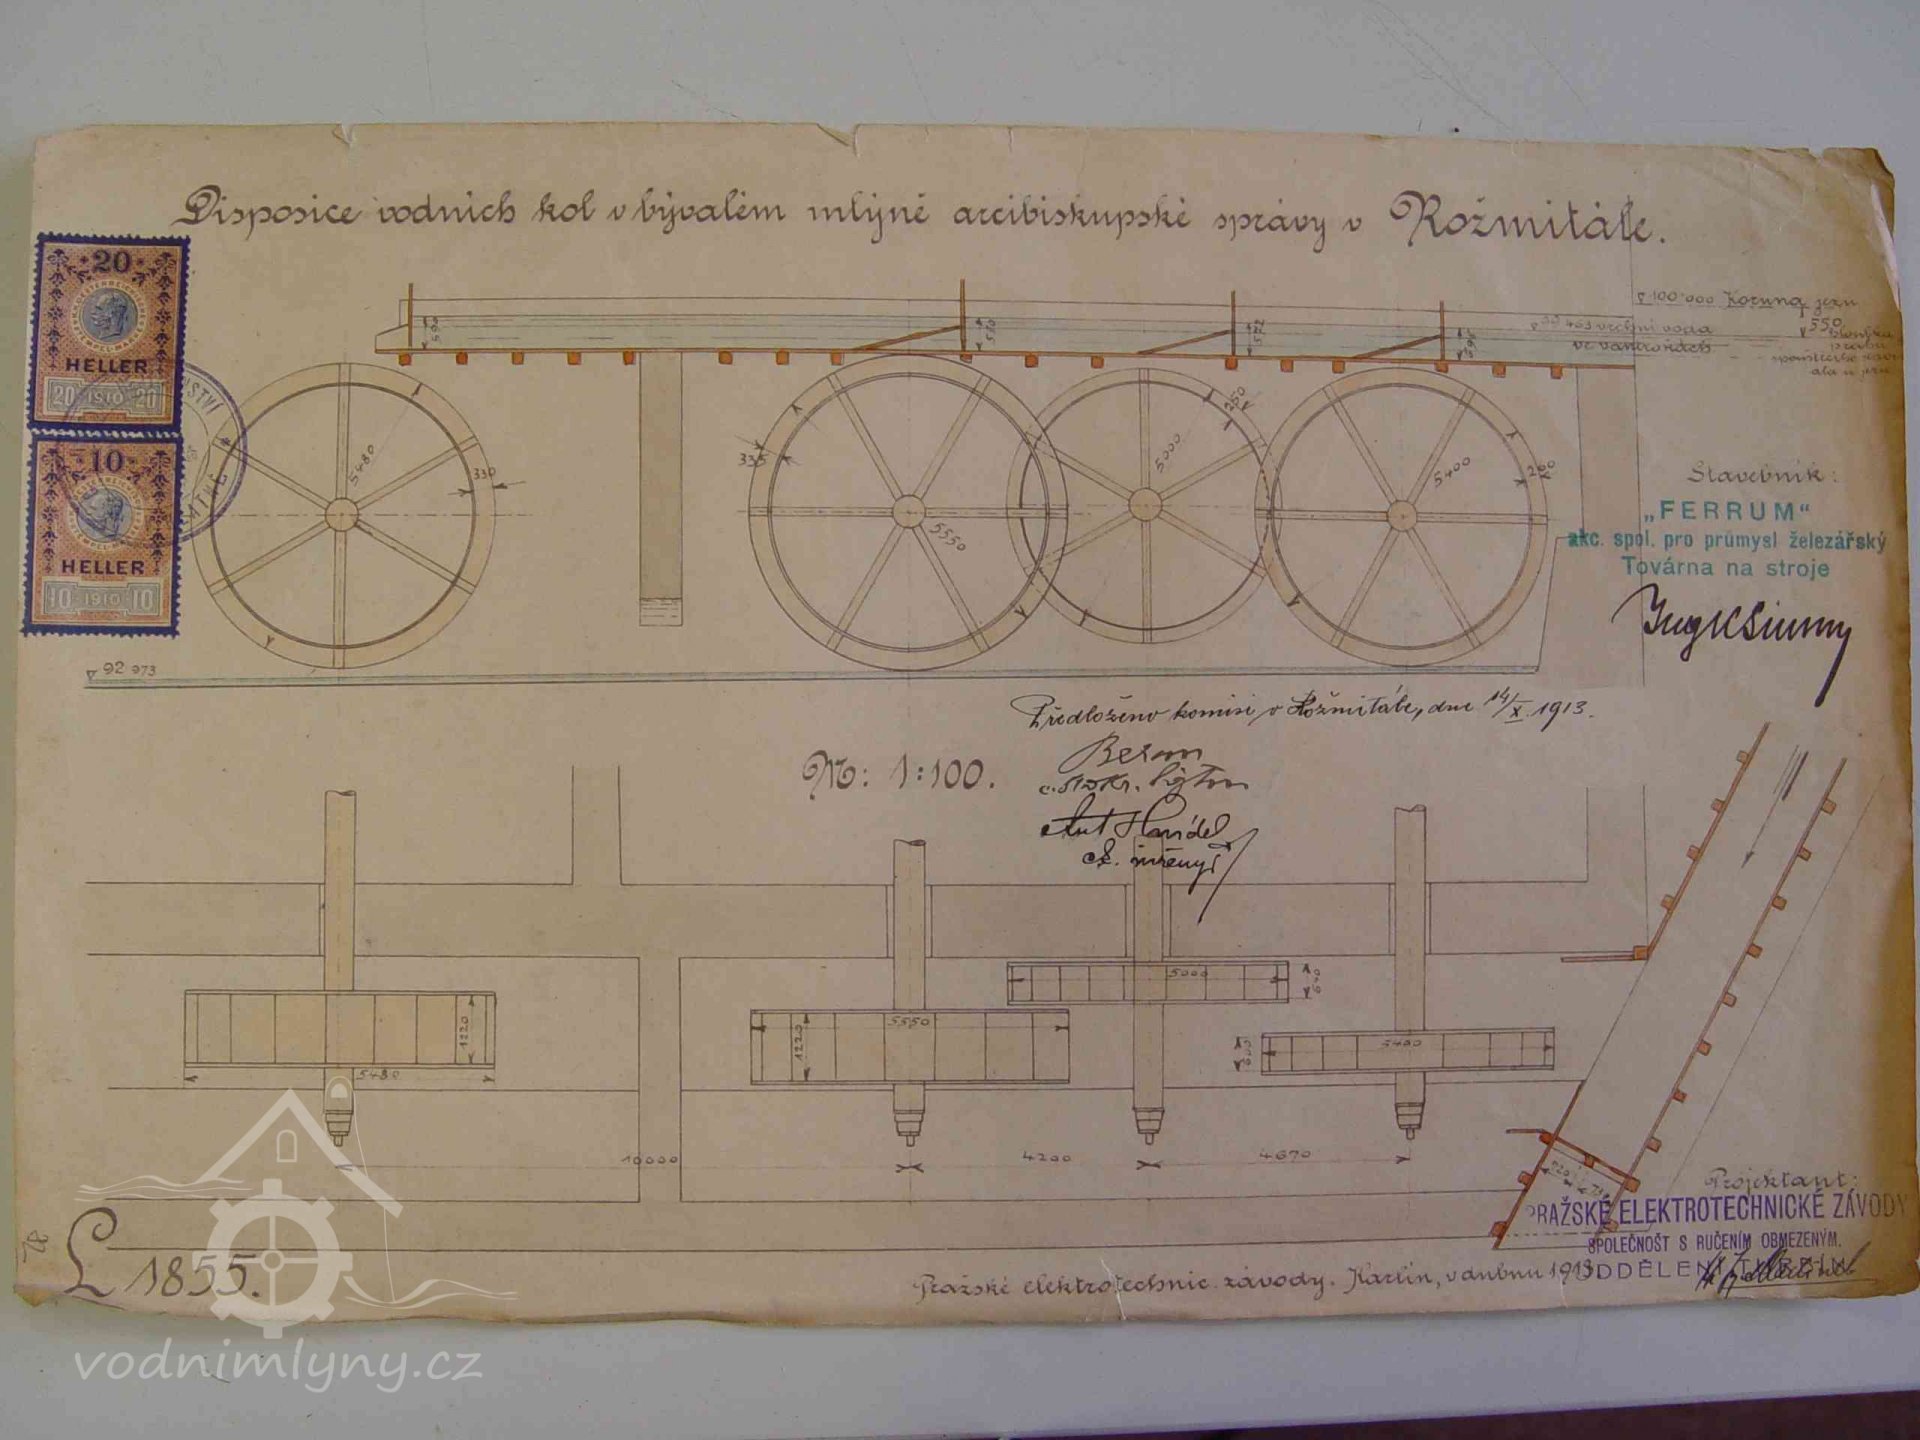 Disposice vodních kol v bývalém mlýně arcibiskupské správy v Rožmitále.
20
HELLER
20 1910 20
10
HELLER
10 1910 10
590
550
572
595
100·000 Koruna jezu
550
463 vrchní voda
ve vantrokách
5480
330
335
5550
250
5000
5400
260
92 973
Stavebník:
„FERRUM“
akc. spol. pro průmysl železářský
Továrna na stroje
Předloženo komisi v Rožmitále, dne 14/X. 1913.
M: 1:100.
Ant
1220
5480
5550
1220
5000
600
5400
600
10000
4200
4670
Projektant:
PRAŽSKÉ ELEKTROTECHNICKÉ ZÁVODY
SPOLEČNOST S RUČENÍM OBMEZENÝM.
ODDĚLENÍ
Pražské elektrotechnic. závody. Karlín, v dubnu 1913.
1855.
vodnimlyny.cz